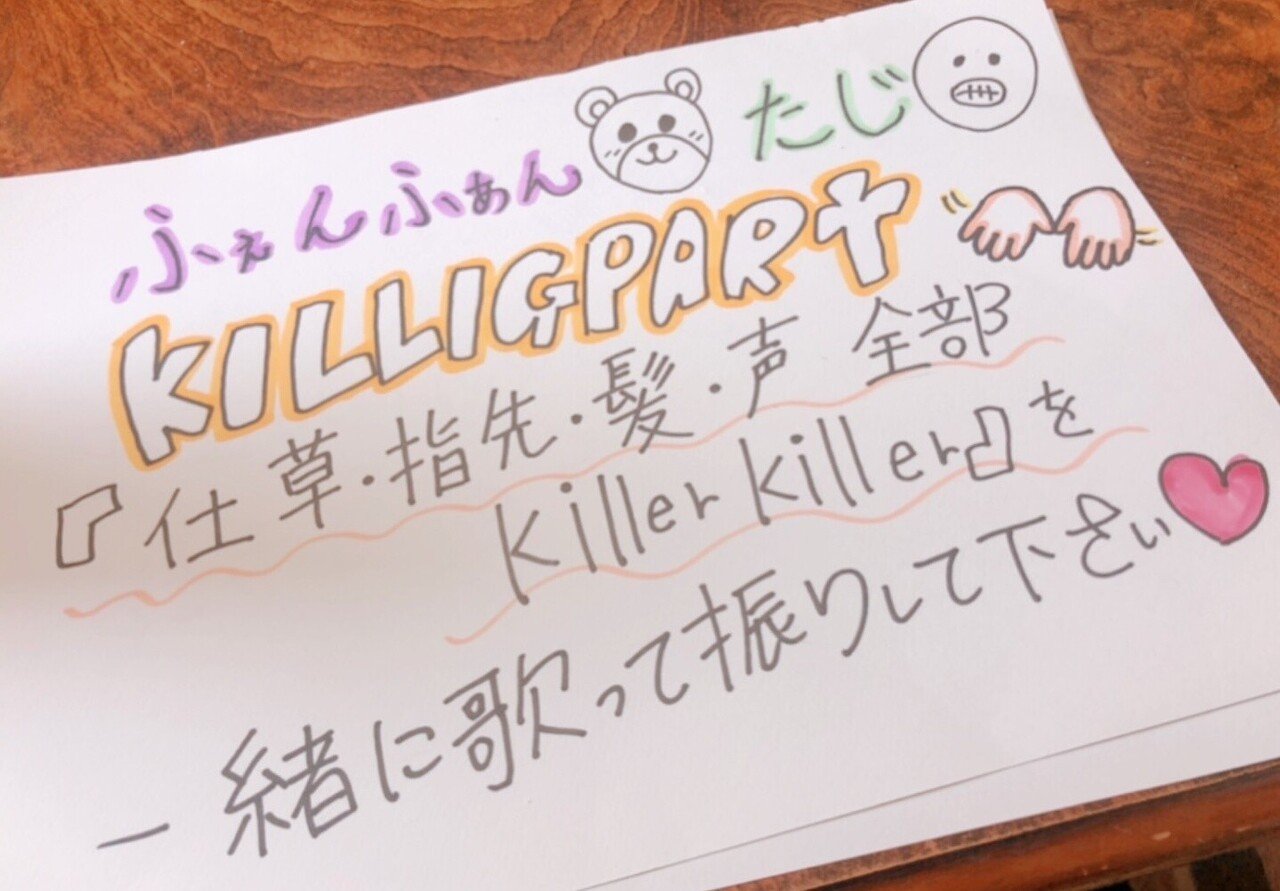 ふぇんふぁん たじ
KILLIGPART
『仕草・指先・髪・声 全部
killer killer』を
一緒に歌って振りして下さい